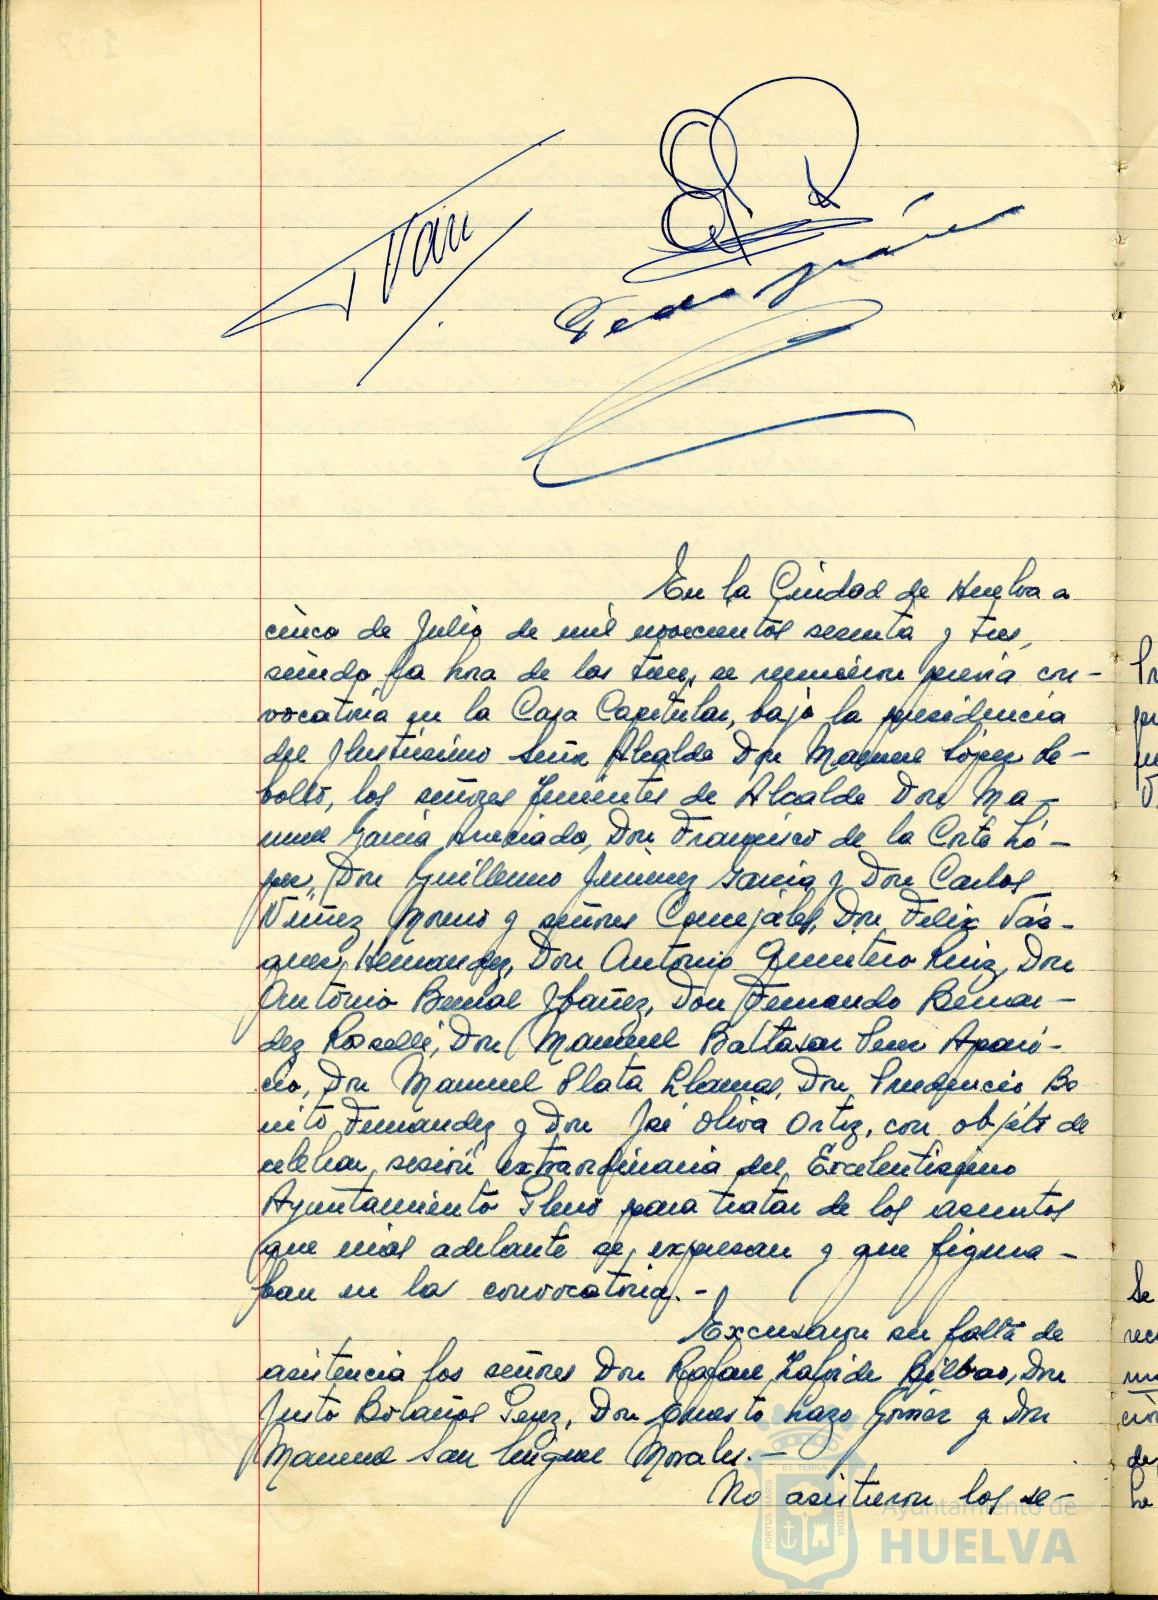 En la Ciudad de Huelva a
cinco de Julio de mil novecientos sesenta y tres,
siendo la hora de las trece, se reunieron previa con-
vocatoria en la Casa Capitular, bajo la presidencia
del Ilustrísimo Señor Alcalde Don Manuel López Re-
bollo, los señores Tenientes de Alcalde Don Ma-
nuel García Don Francisco de la Corte Ló-
pez, Don Guillermo Jiménez García y Don Carlos
Núñez Moreno y señores Concejales, Don Felix Vás-
quez Hernandez, Don Antonio Quintero Ruiz, Don
Antonio Bernal Ibañez, Don Fernando Bernar-
dez Roselli, Don Manuel Baltasar Pérez Apari-
cio, Don Manuel Plata Llamas, Don Prudencio Bo
nito Fernández y Don José Oliva Ortiz, con objeto de
celebrar sesión extraordinaria del Excelentisimo
Ayuntamiento Pleno para tratar de los asuntos
que más adelante se expresan y que figura-
ban en la convocatoria.-
Excusaron su falta de
asistencia los señores Don Rafael Lafarde Bilbao, Don
Justo Bolaños Perez, Don Ernesto Lazo Gómez y Don
Manuel San Miguel Morales.-
No asistieron los se-
Ayuntamiento de
HUELVA